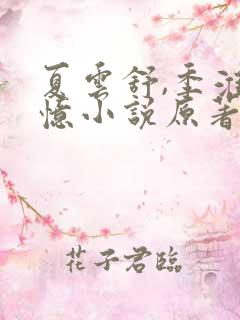 夏雲舒,季淮
憶小説原著
花子君臨